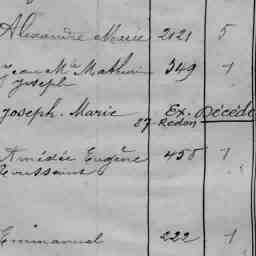 Alexandre Marie 2121 5
Jean Mie Mathurin 349 1
Joseph
Joseph. Marie Ex. Décédé
87. Redon
Amédée Eugène 458 1
Toussaint
Emmanuel 222 1